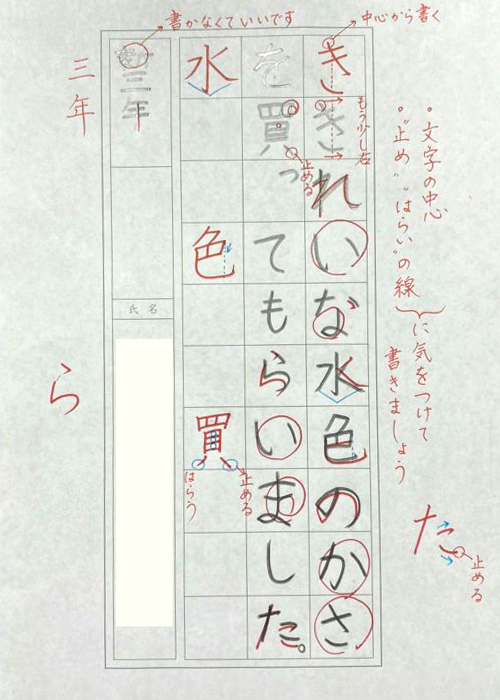 中心から書く
書かなくていいです
。文字の中心
。"止め""はらい"の線
に気をつけて
書きましょう
た
止める
きれいな水色のかさ
もう少し左
を買ってもらいました。
止める
水
色
買
はらう
止める
三年
氏名
三年
ら